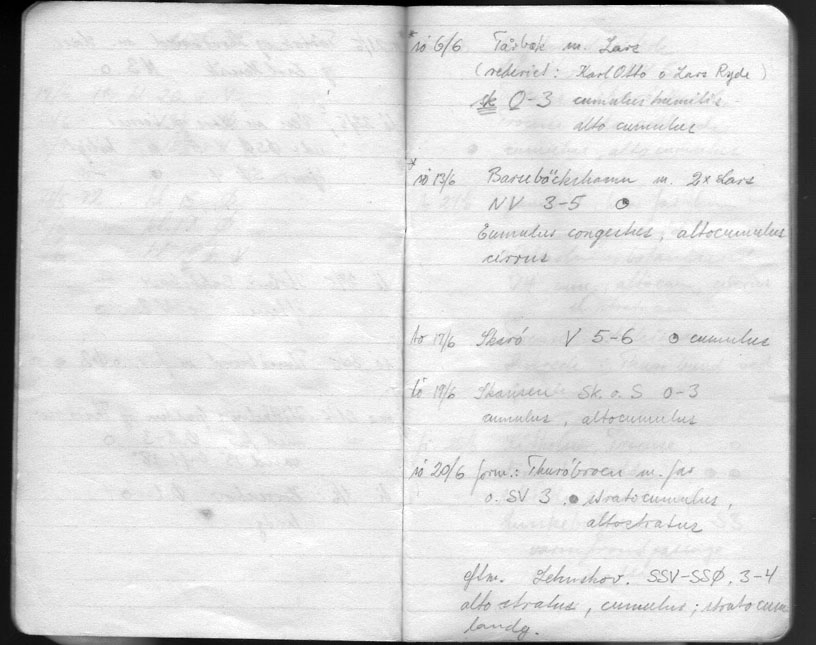 * sö 6/6 Tårbæk m. Lars
(referiet: Karl Otto o Lars Ryde)
sk O-3 cumulus humilis
alto cumulus
* sö 13/6 Barsebäckshamn m. 2x Lars
NV 3-5
Cumulus congestus, altocumulus
cirrus
to 17/6 Skarö V 5-6 cumulus
lö 19/6 Sk. o. S 0-3
cumulus, altocumulus
sö 20/6 form.: Thuröbroen m. far
o. SV 3 stratocumulus,
altostratus
eftm. SSV-SSØ. 3-4
alto stratus, cumulus; stratocum
landg.